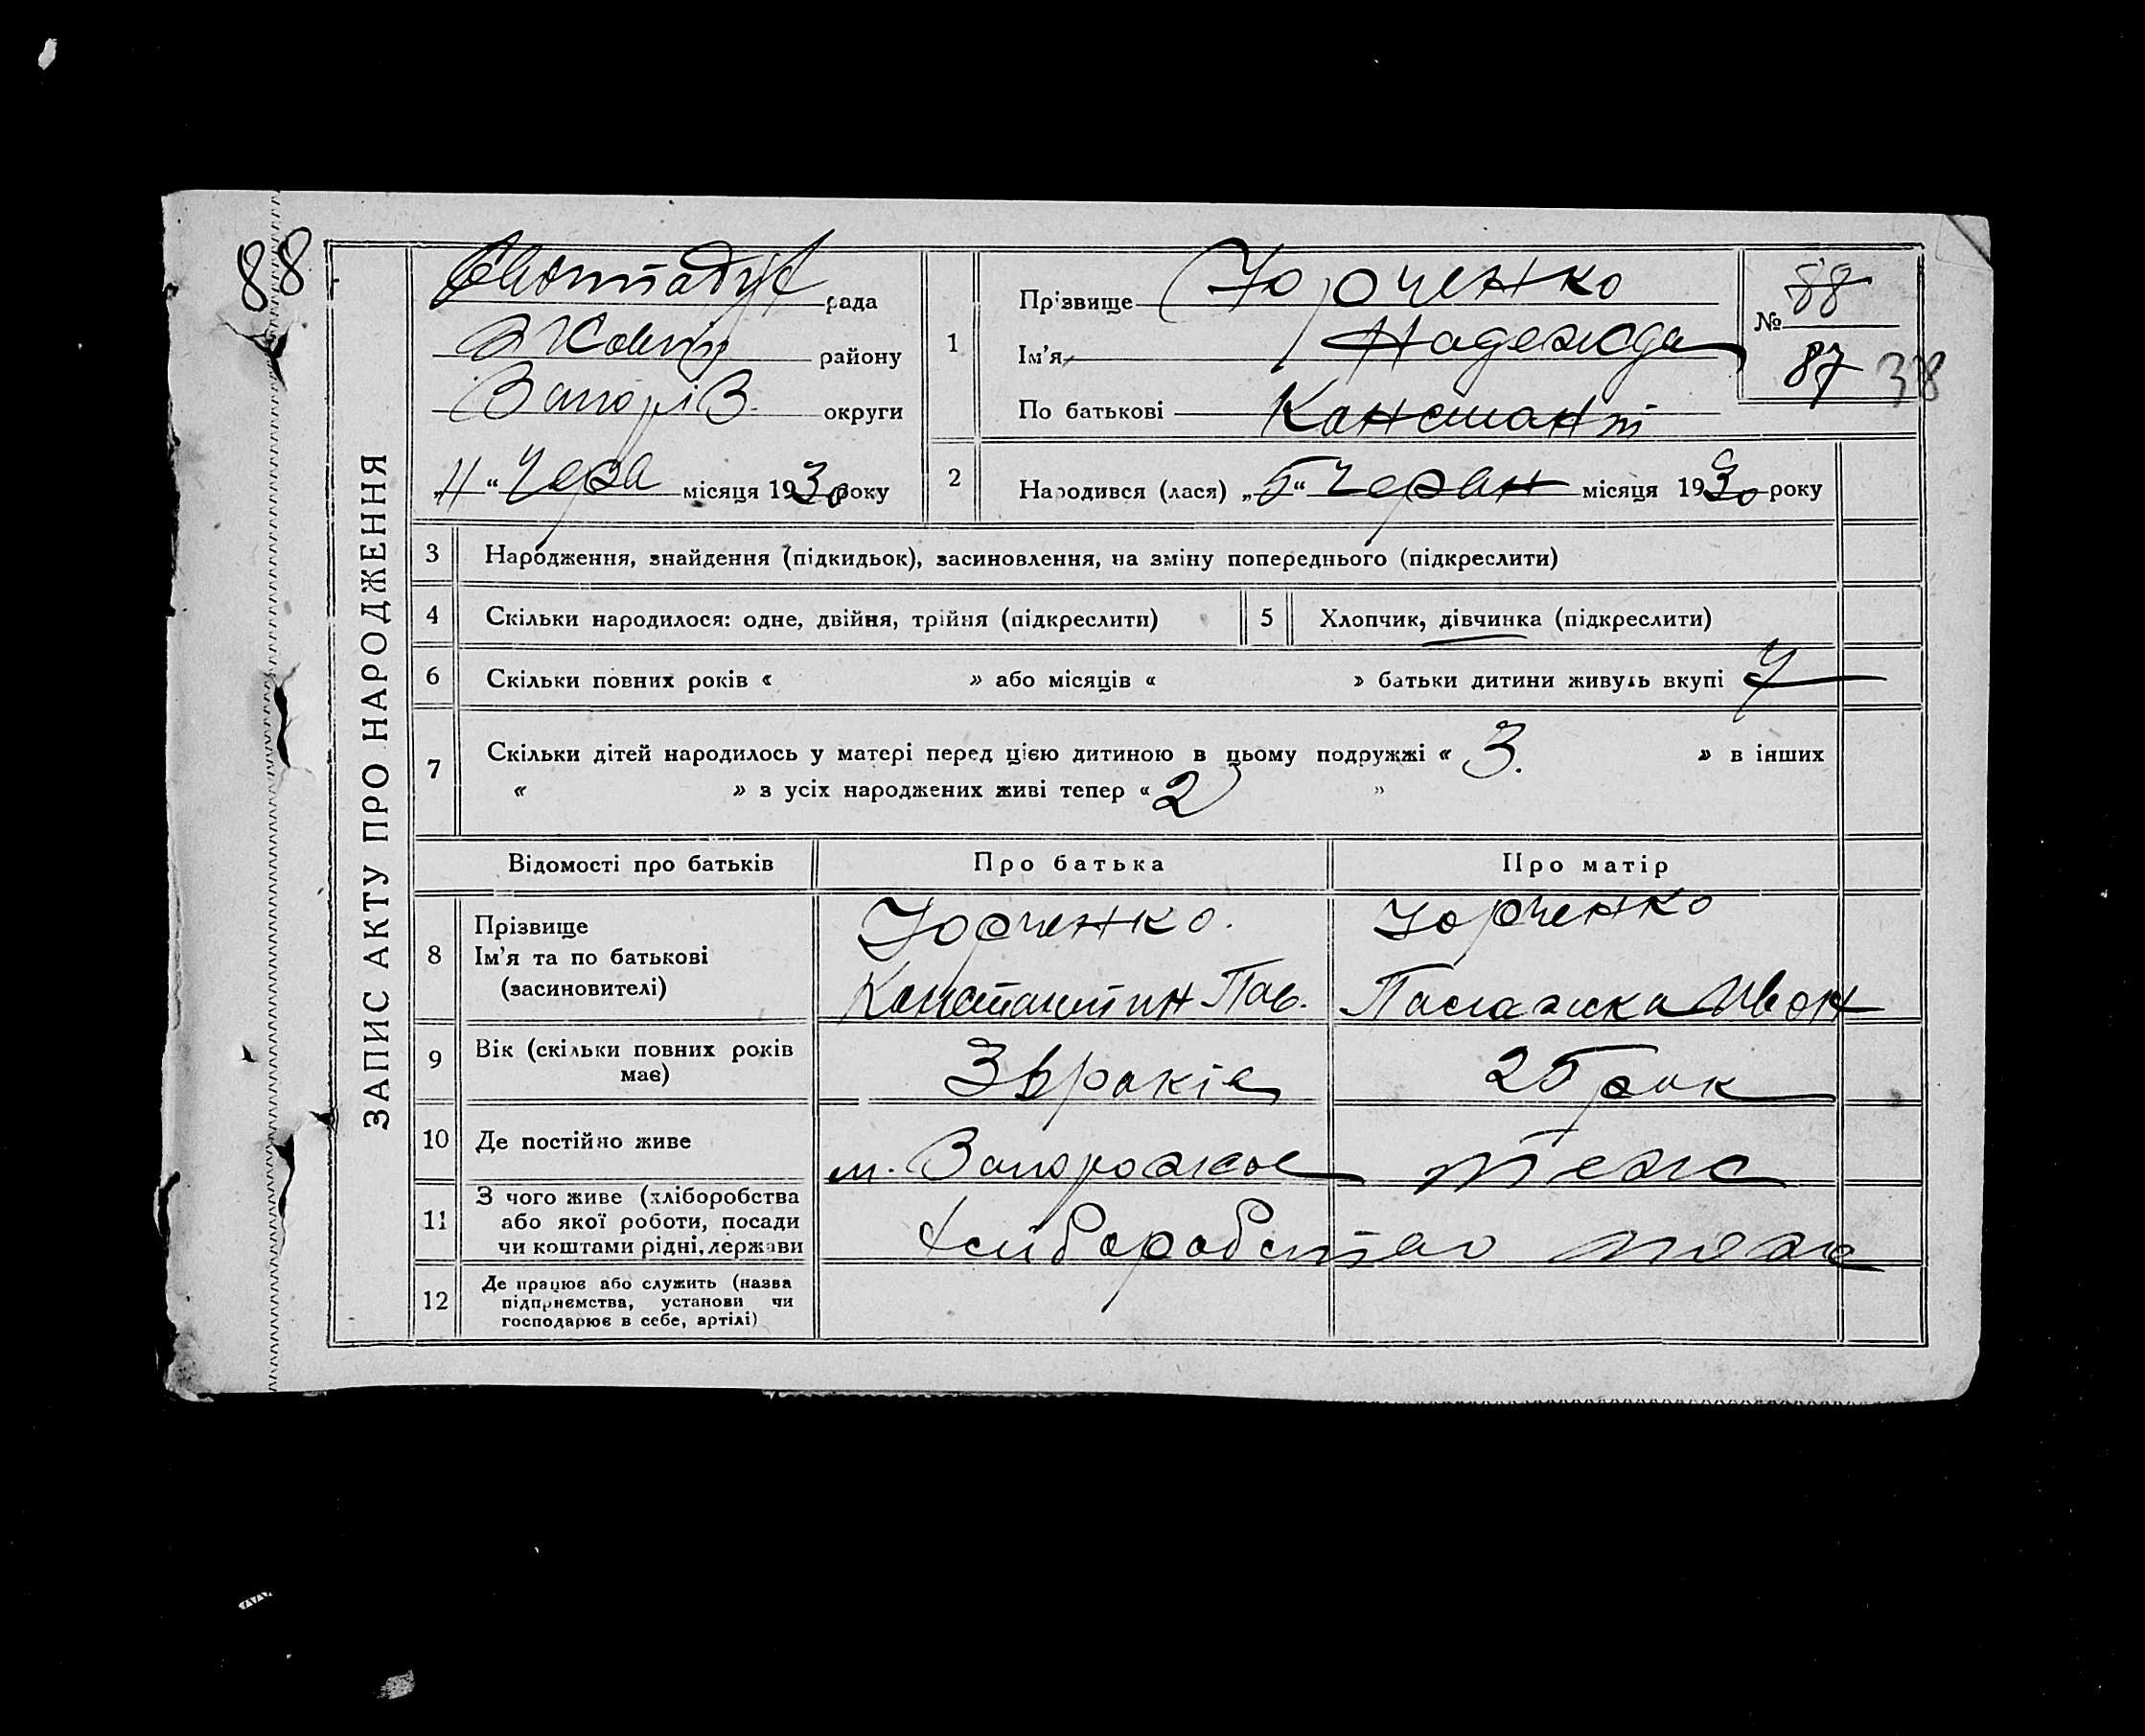 88
ЗАПИС АКТУ ПРО НАРОДЖЕННЯ
рада
району
Запоріз. округи
„11“ Черв місяця 1930 року
1
Прізвище Юрченко
Ім’я Надежда
По батькові Констант
№ 88
87 38
2 Народився (лася) „5“ Червн місяця 1930 року
3 Народження, знайдення (підкидьок), засиновлення, на зміну попереднього (підкреслити)
4 Скільки народилося: одне, двійня, трійня (підкреслити) 5 Хлопчик, дівчинка (підкреслити)
6 Скільки повних років « » або місяців « » батьки дитини живуть вкупі 7
7 Скільки дітей народилось у матері перед цією дитиною в цьому подружжі « 3. » в інших
« » з усіх народжених живі тепер « 2 »
Відомості про батьків Про батька Про матір
8 Прізвище
Ім’я та по батькові
(засиновителі)
Юрченко.
Константин Пав.
Юрченко
Пелагея Иван
9 Вік (скільки повних років
має)
років
25 рок
10 Де постійно живе м. Запорожье теж
11 З чого живе (хліборобства
або якої роботи, посади
чи коштами рідні, держави
Хліборобство теж
12 Де працює або служить (назва
підприємства, установи чи
господарює в себе, артілі)